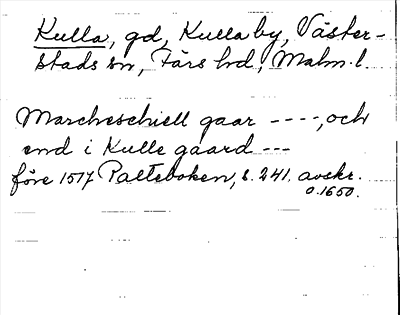 Kulla, gd, Kulla by, Väster-
stads sn, Färs hd, Malm. l.
Marcheschiell gaar ----, och
end i Kulle gaard ---
före 1517 Palteboken, s. 241. avskr.
o. 1650.